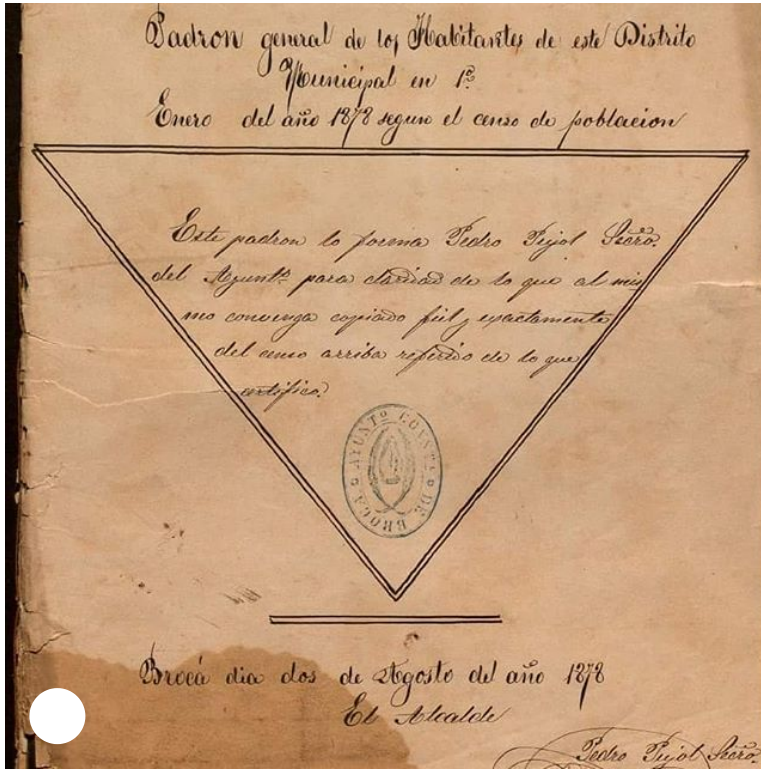 Padron general de los Habitantes de este Distrito
Municipal en 1º
Enero del año 1878 segun el censo de poblacion
Este padron lo forma Pedro Pujol Secrº.
del Ayuntº para claridad de lo que al mis
mo convenga copiado fiel y exactamente
del censo arriba referido de lo que
certifico.
AYUNTº CONSTL DE BROCA
Brocá dia dos de Agosto del año 1878
El Alcalde
Pedro Pujol Secrº.